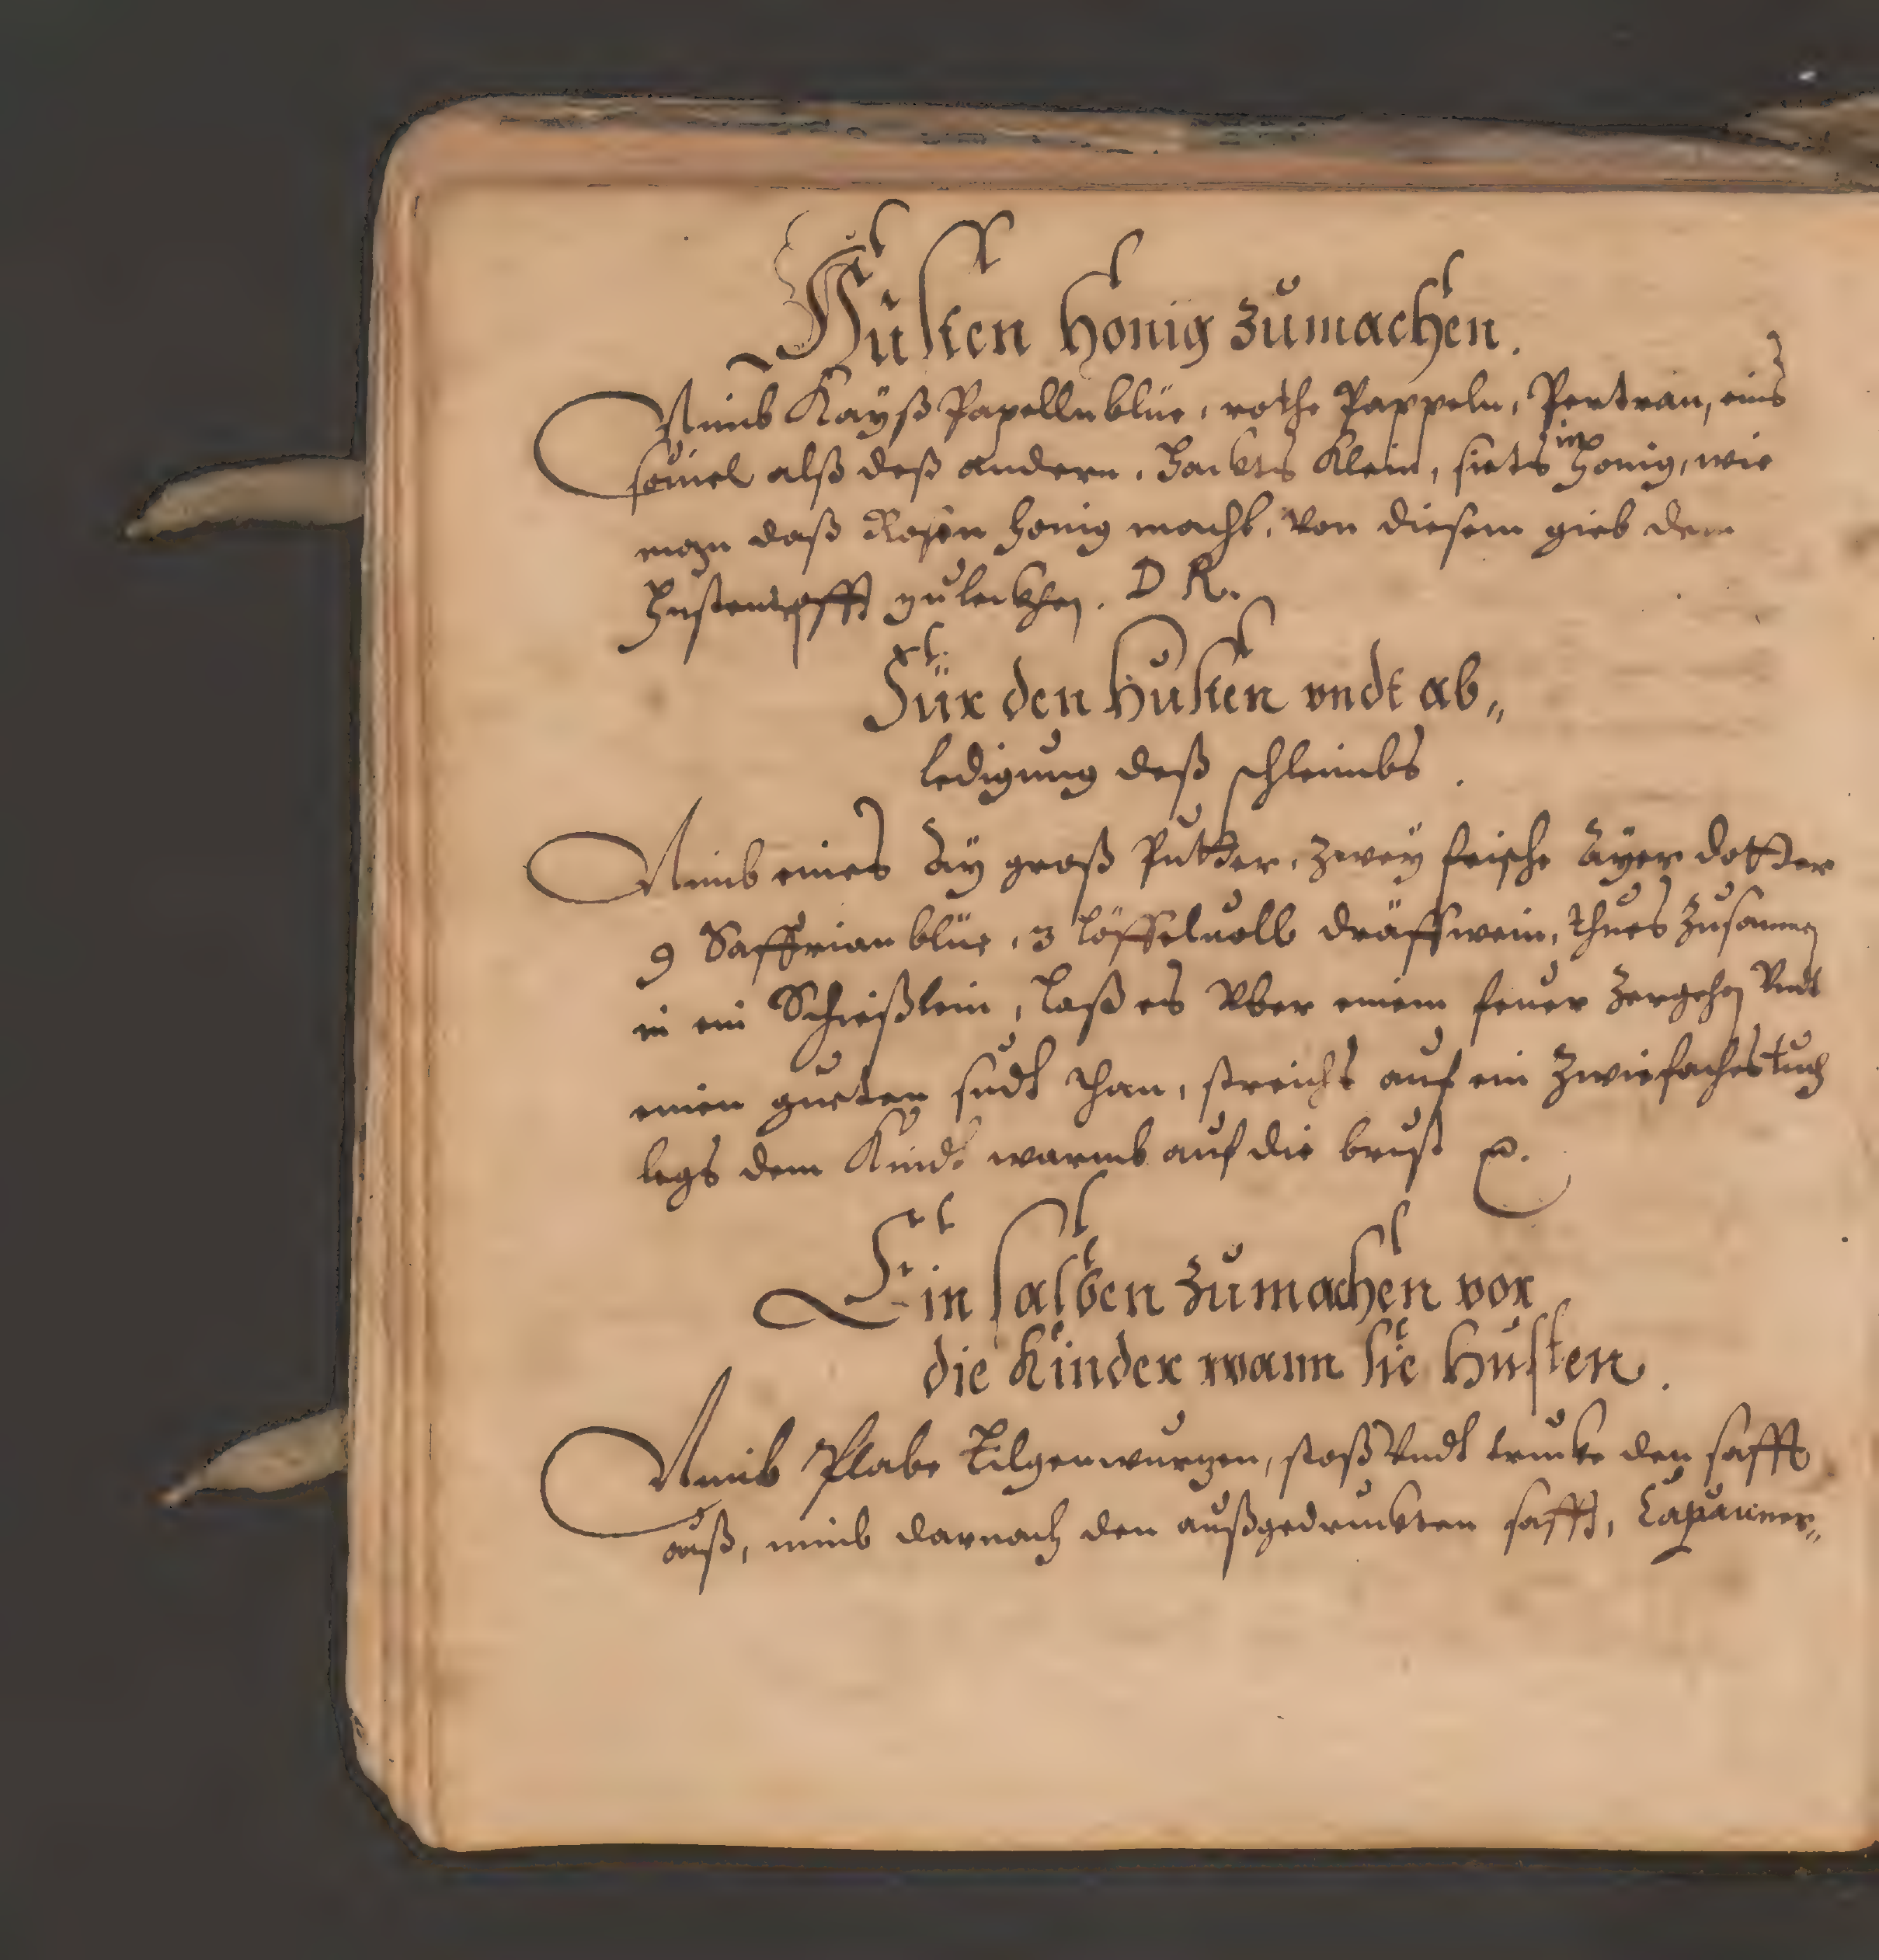 Husten Honig zumachen.
Nimb Kayß Papellnblüe, rothe Pappeln, Pertran, eins
souiel alß deß andern, hackts klein, siets im honig, wie
man daß Rosen honig macht, von diesem gieb dem
zuleckhen. D R.
Für den Husten vndt ab„
ledigung deß schleimbs.
Nimb eines Ay groß Putter, zwey frische Ayer dotter
9 Saffrian blüe, 3 löffeluoll wein, thues zusammen
in ein Schißlein, laß es vber einem feuer zergehen vndt
einen gueten sudt than, streichs auf ein zwiefaches tuch
legs dem Kindt warmb auf die brust
Ein salben zumachen vor
die Kinder wann sie Husten.
Nimb Plabe Lilgenwurzen, stoß vndt trucke den safft
auß, nimb darnach den außgedruckten safft, Capauner„